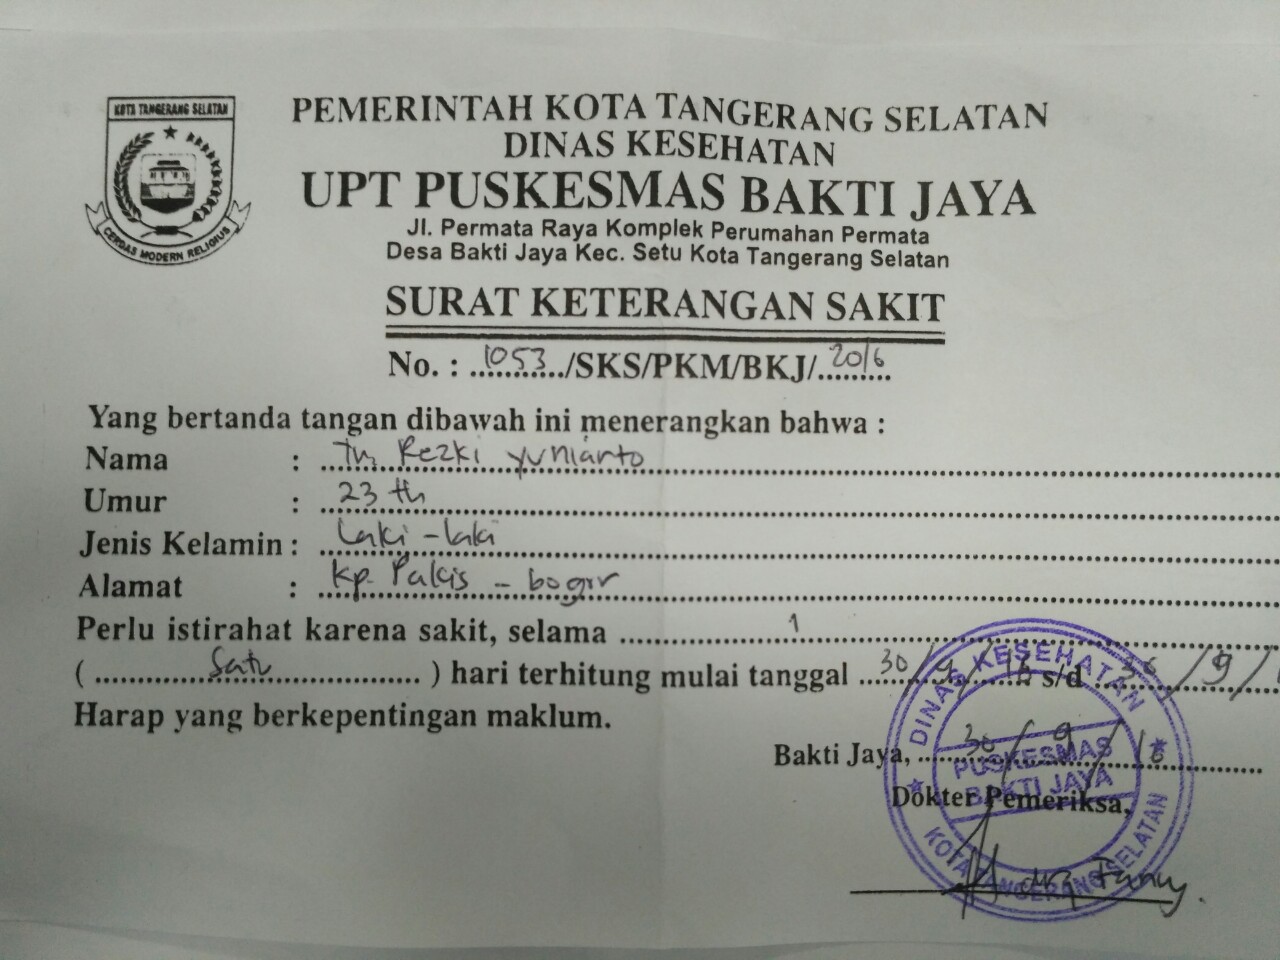 KOTA TANGERANG SELATAN
CERDAS MODERN RELIGIUS
PEMERINTAH KOTA TANGERANG SELATAN
DINAS KESEHATAN
UPT PUSKESMAS BAKTI JAYA
Jl. Permata Raya Komplek Perumahan Permata
Desa Bakti Jaya Kec. Setu Kota Tangerang Selatan
SURAT KETERANGAN SAKIT
No. : 1053/SKS/PKM/BKJ/2016
Yang bertanda tangan dibawah ini menerangkan bahwa :
Nama : Tn. Rezki yunianto
Umur : 23 th
Jenis Kelamin : Laki-laki
Alamat : Kp. Pakis - bogor
Perlu istirahat karena sakit, selama 1
( Satu ) hari terhitung mulai tanggal 30/9/16 s/d 30/9/1
Harap yang berkepentingan maklum.
Bakti Jaya, 30/9/16
Dokter Pemeriksa,
DINAS KESEHATAN
PUSKESMAS
BAKTI JAYA
KOTA TANGERANG SELATAN